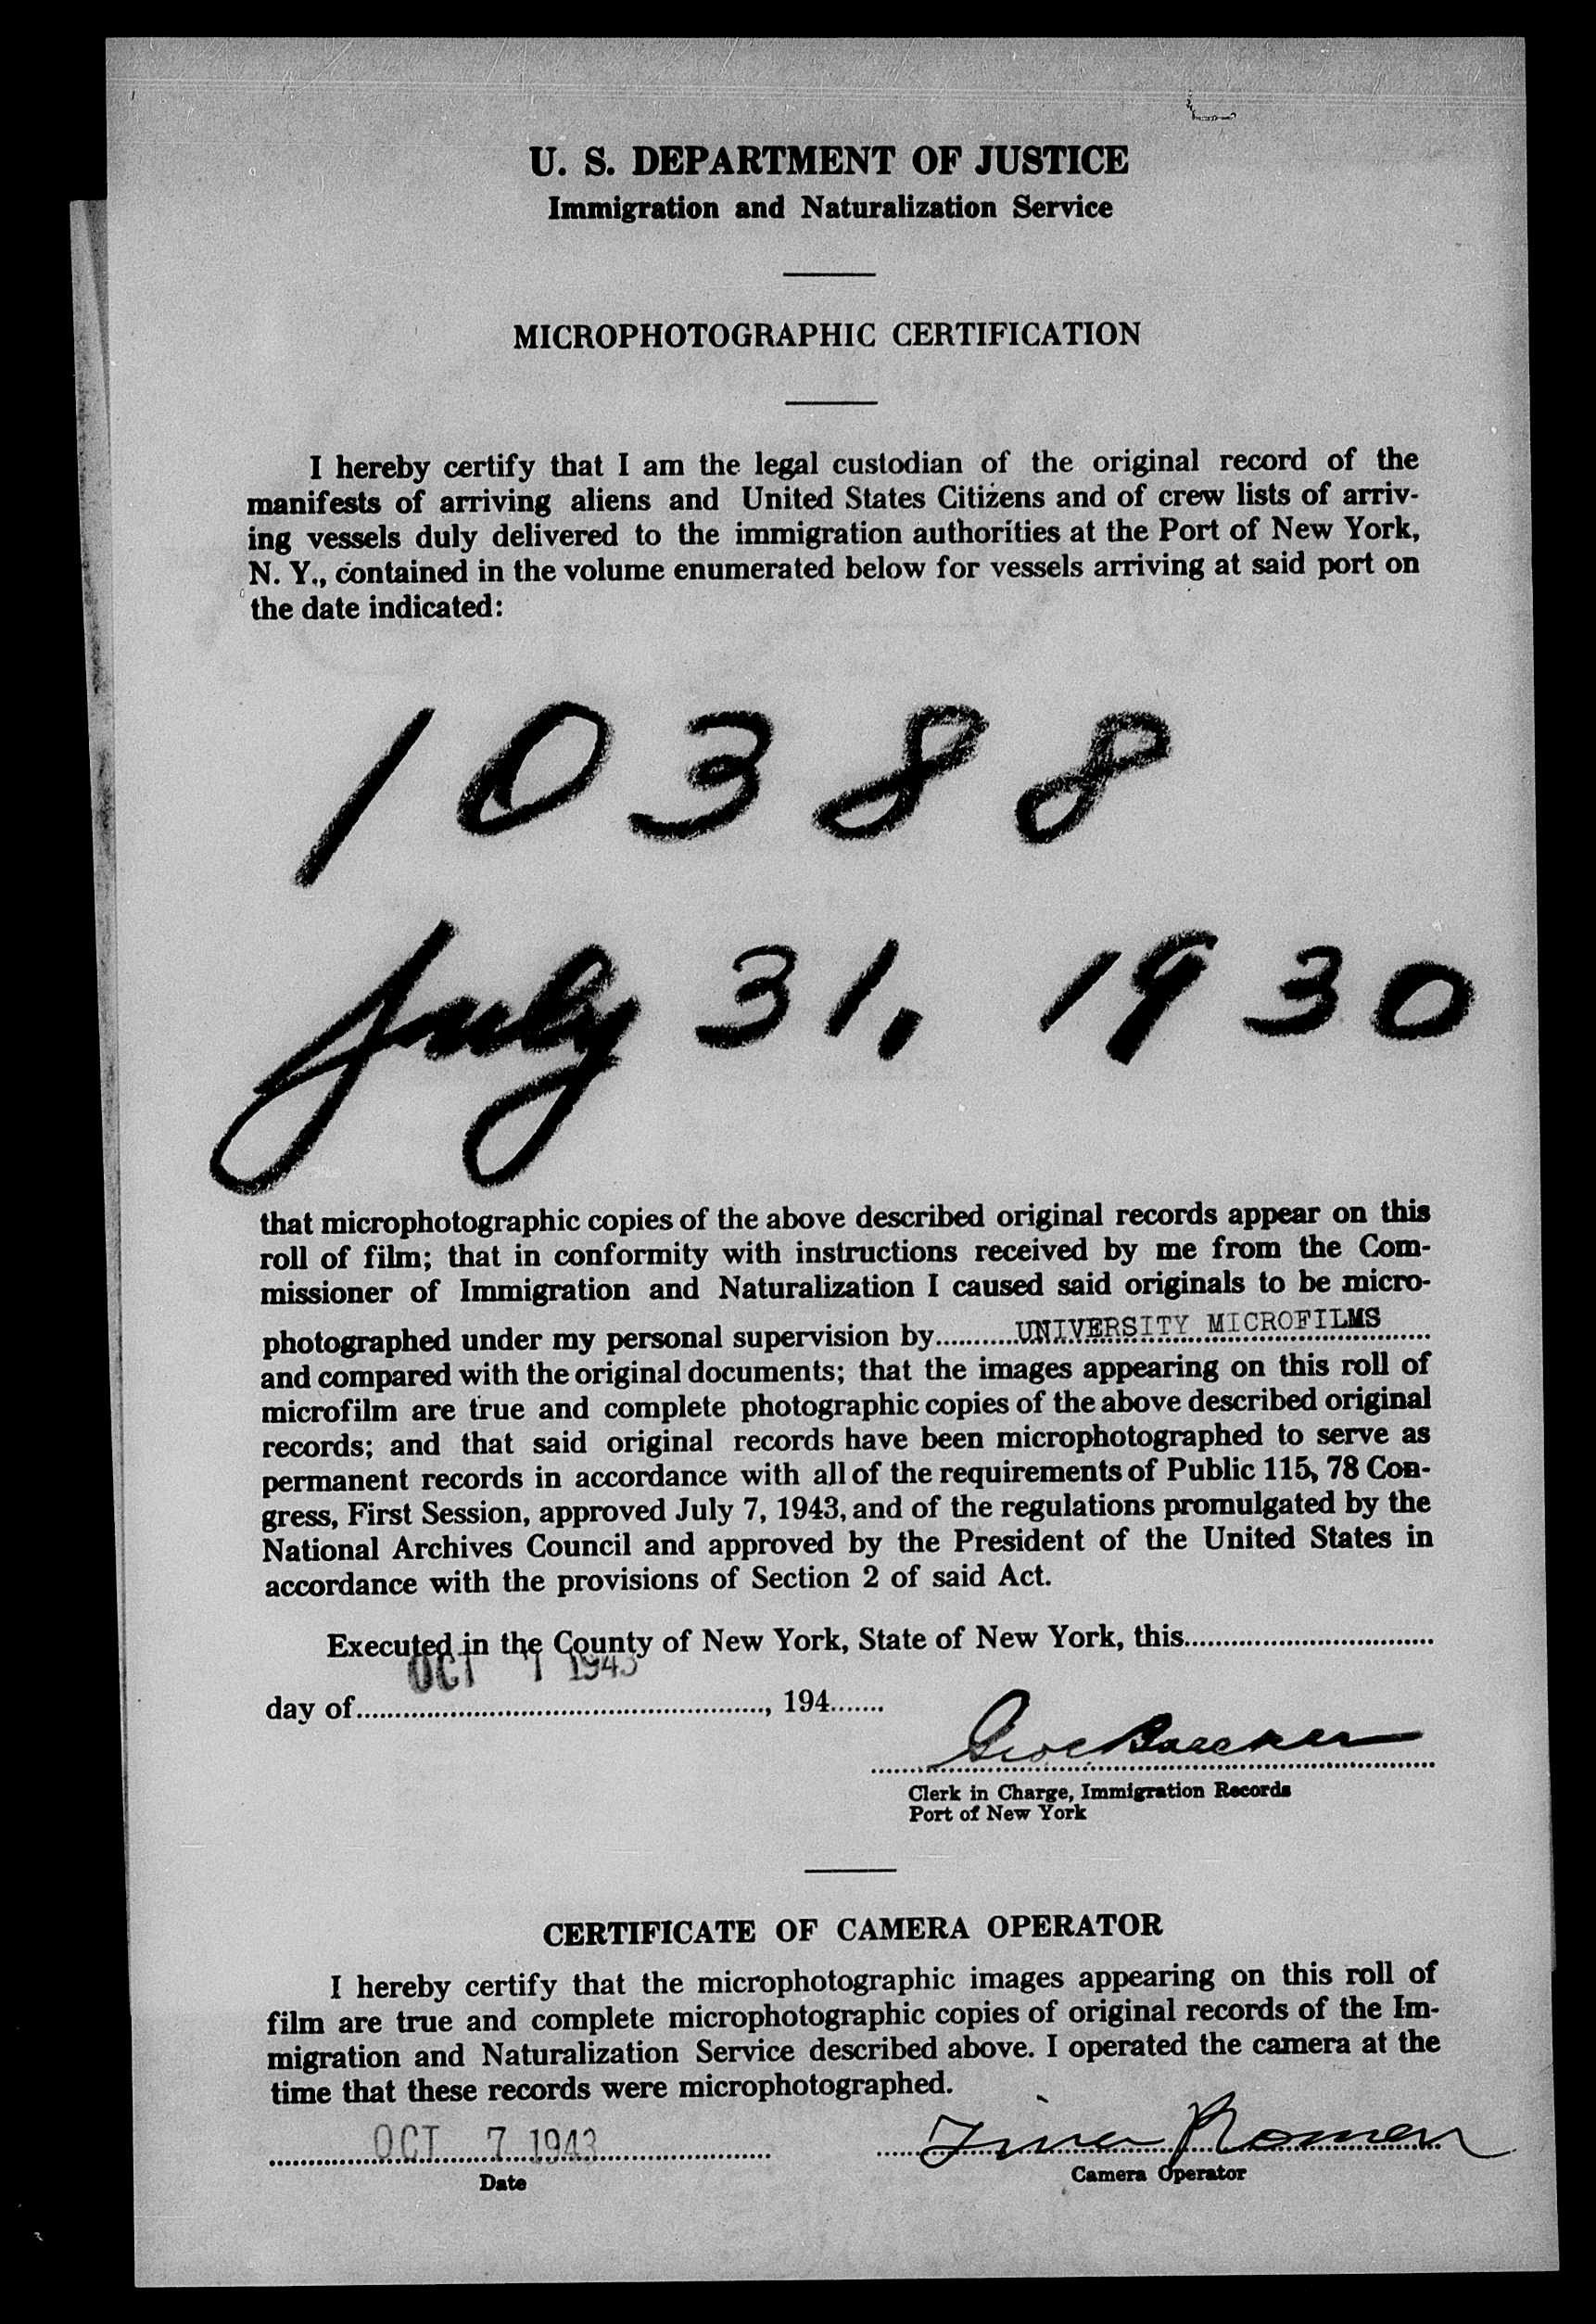 U. S. DEPARTMENT OF JUSTICE
Immigration and Naturalization Service
MICROPHOTOGRAPHIC CERTIFICATION
I hereby certify that I am the legal custodian of the original record of the
manifests of arriving aliens and United States Citizens and of crew lists of arriv-
ing vessels duly delivered to the immigration authorities at the Port of New York,
N. Y., contained in the volume enumerated below for vessels arriving at said port on
the date indicated:
10388
July 31, 1930
that microphotographic copies of the above described original records appear on this
roll of film; that in conformity with instructions received by me from the Com-
missioner of Immigration and Naturalization I caused said originals to be micro-
photographed under my personal supervision by UNIVERSITY MICROFILMS
and compared with the original documents; that the images appearing on this roll of
microfilm are true and complete photographic copies of the above described original
records; and that said original records have been microphotographed to serve as
permanent records in accordance with all of the requirements of Public 115, 78 Con-
gress, First Session, approved July 7, 1943, and of the regulations promulgated by the
National Archives Council and approved by the President of the United States in
accordance with the provisions of Section 2 of said Act.
Executed in the County of New York, State of New York, this
OCT 1943
day of , 194
Clerk in Charge, Immigration Records
Port of New York
CERTIFICATE OF CAMERA OPERATOR
I hereby certify that the microphotographic images appearing on this roll of
film are true and complete microphotographic copies of original records of the Im-
migration and Naturalization Service described above. I operated the camera at the
time that these records were microphotographed.
OCT 7 1943
Date
Camera Operator